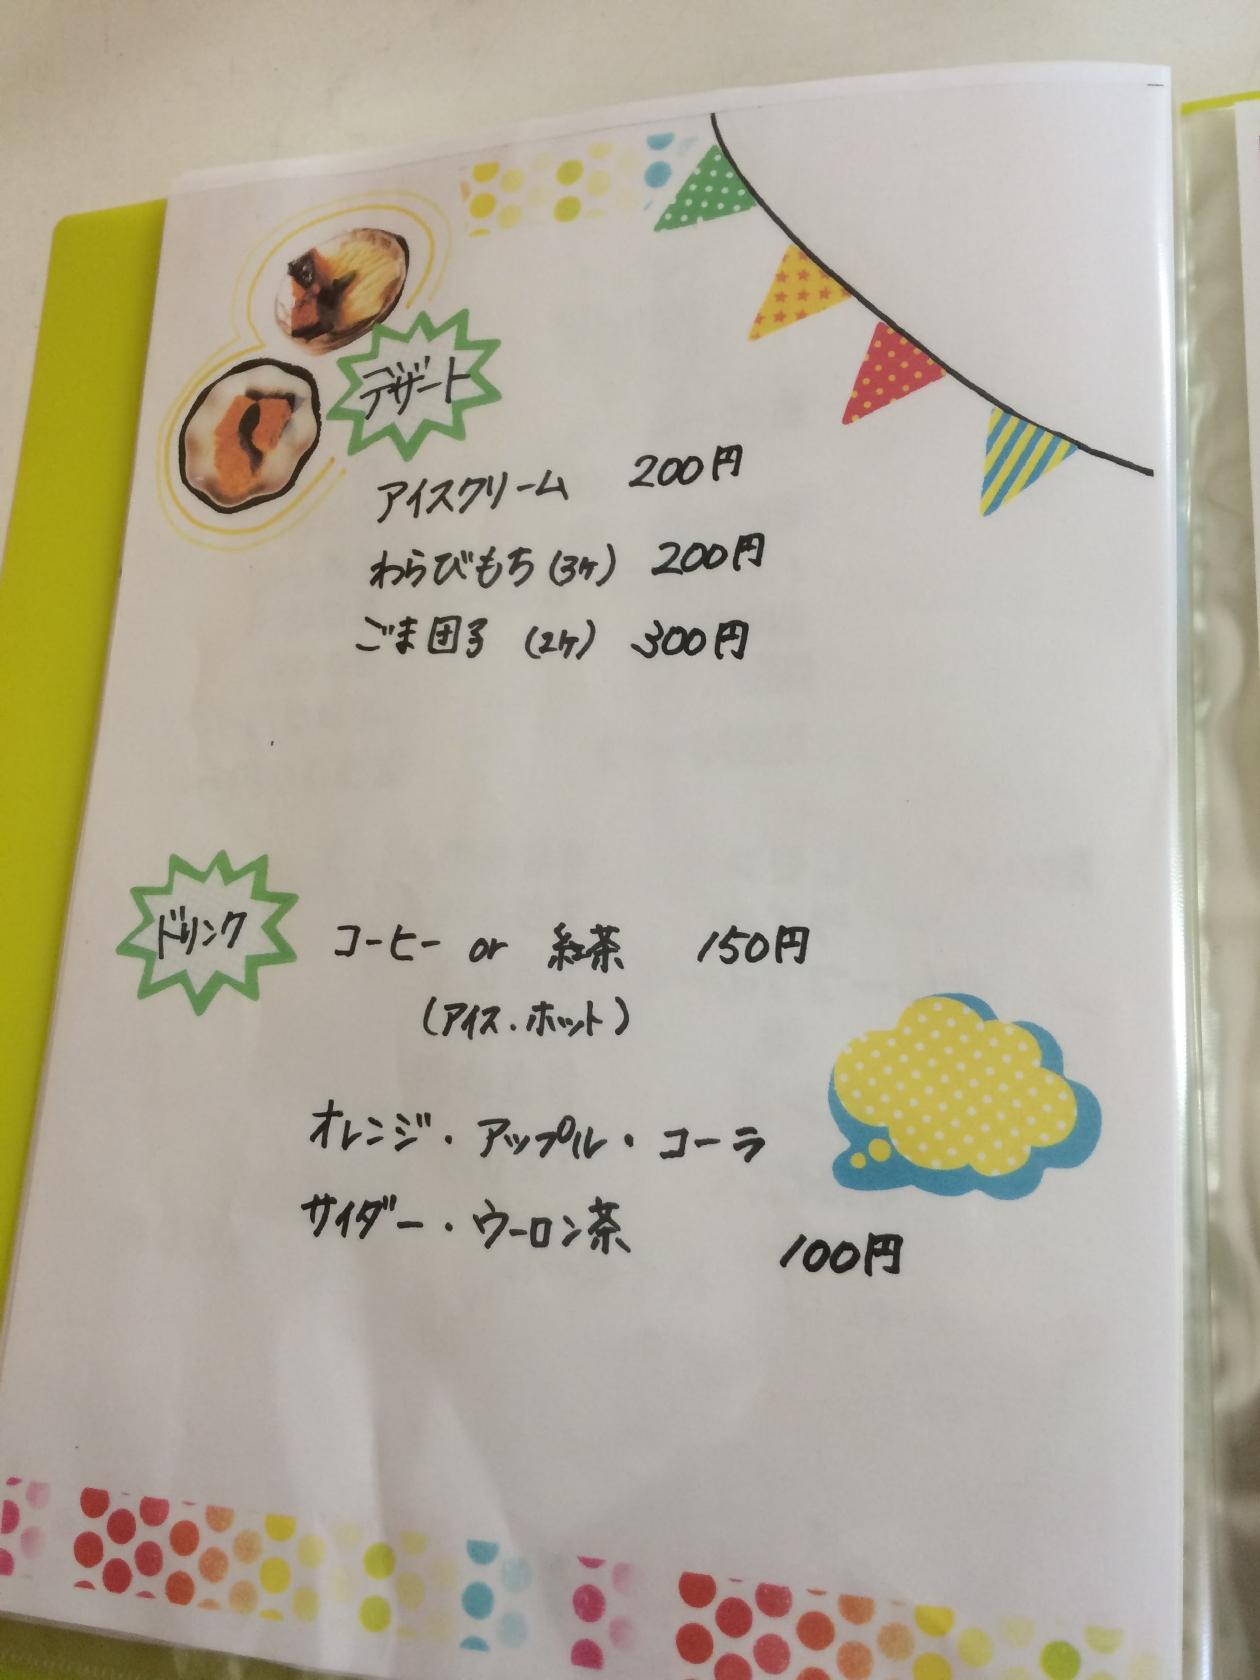 デザート
アイスクリーム 200円
わらびもち(3ヶ) 200円
ごま団子 (2ヶ) 300円
ドリンク
コーヒー or 紅茶 150円
(アイス・ホット)
オレンジ・アップル・コーラ
サイダー・ウーロン茶
100円